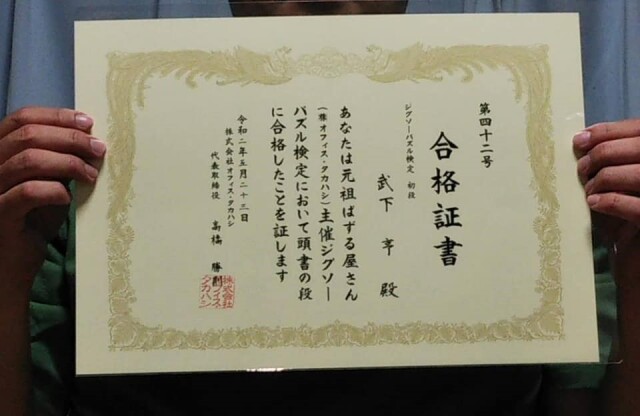 第四十二号
合格証書
ジグソーパズル検定 初段
武下 幸 殿
あなたは元祖ぱずる屋さん
(株オフィス・タカハシ)主催ジグソー
パズル検定において頭書の段
に合格したことを証します
令和二年五月二十三日
株式会社オフィス・タカハシ
代表取締役 高橋 勝
株式会社
オフィス・
タカハシ